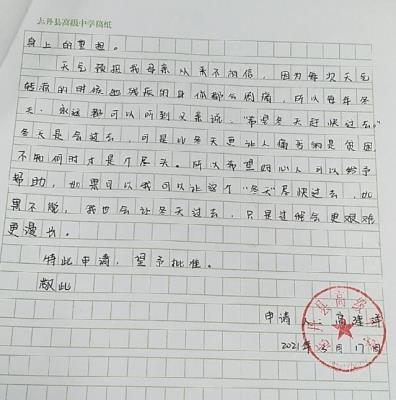 县高级中学稿纸
身上的重担。
天气预报我母亲从来不的信，因为每次天气
转夜的时候她残疾的身体都会疼痛，所以每年冬
天，永远都可以听到父亲说，“希望冬天赶快过去。”
冬天是会过去，可是比冬天更让人痛苦的是贫困
不知何时才是个尽头。所以希望好心人可以给予
帮助，如果可以我可以让这个“冬天”尽快过去，如
果不能，我也会让冬天过去，只是过程会更艰难
更漫长。
特此申请，望予批准。
敬此
申请 高
2021年3月17日